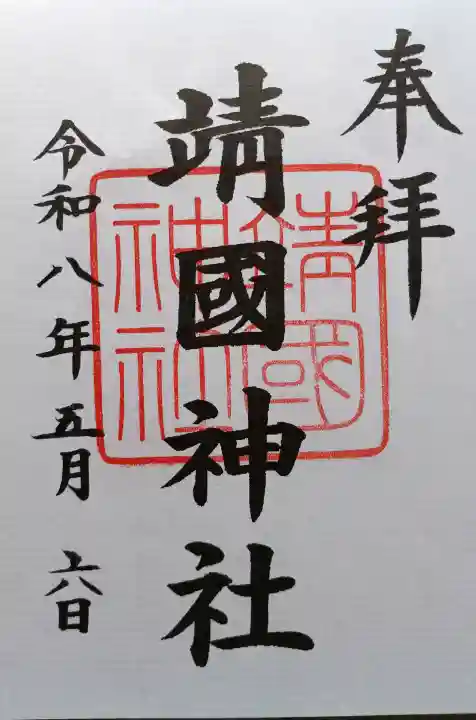 奉拝
靖國神社
靖國
神社
令和八年五月六日